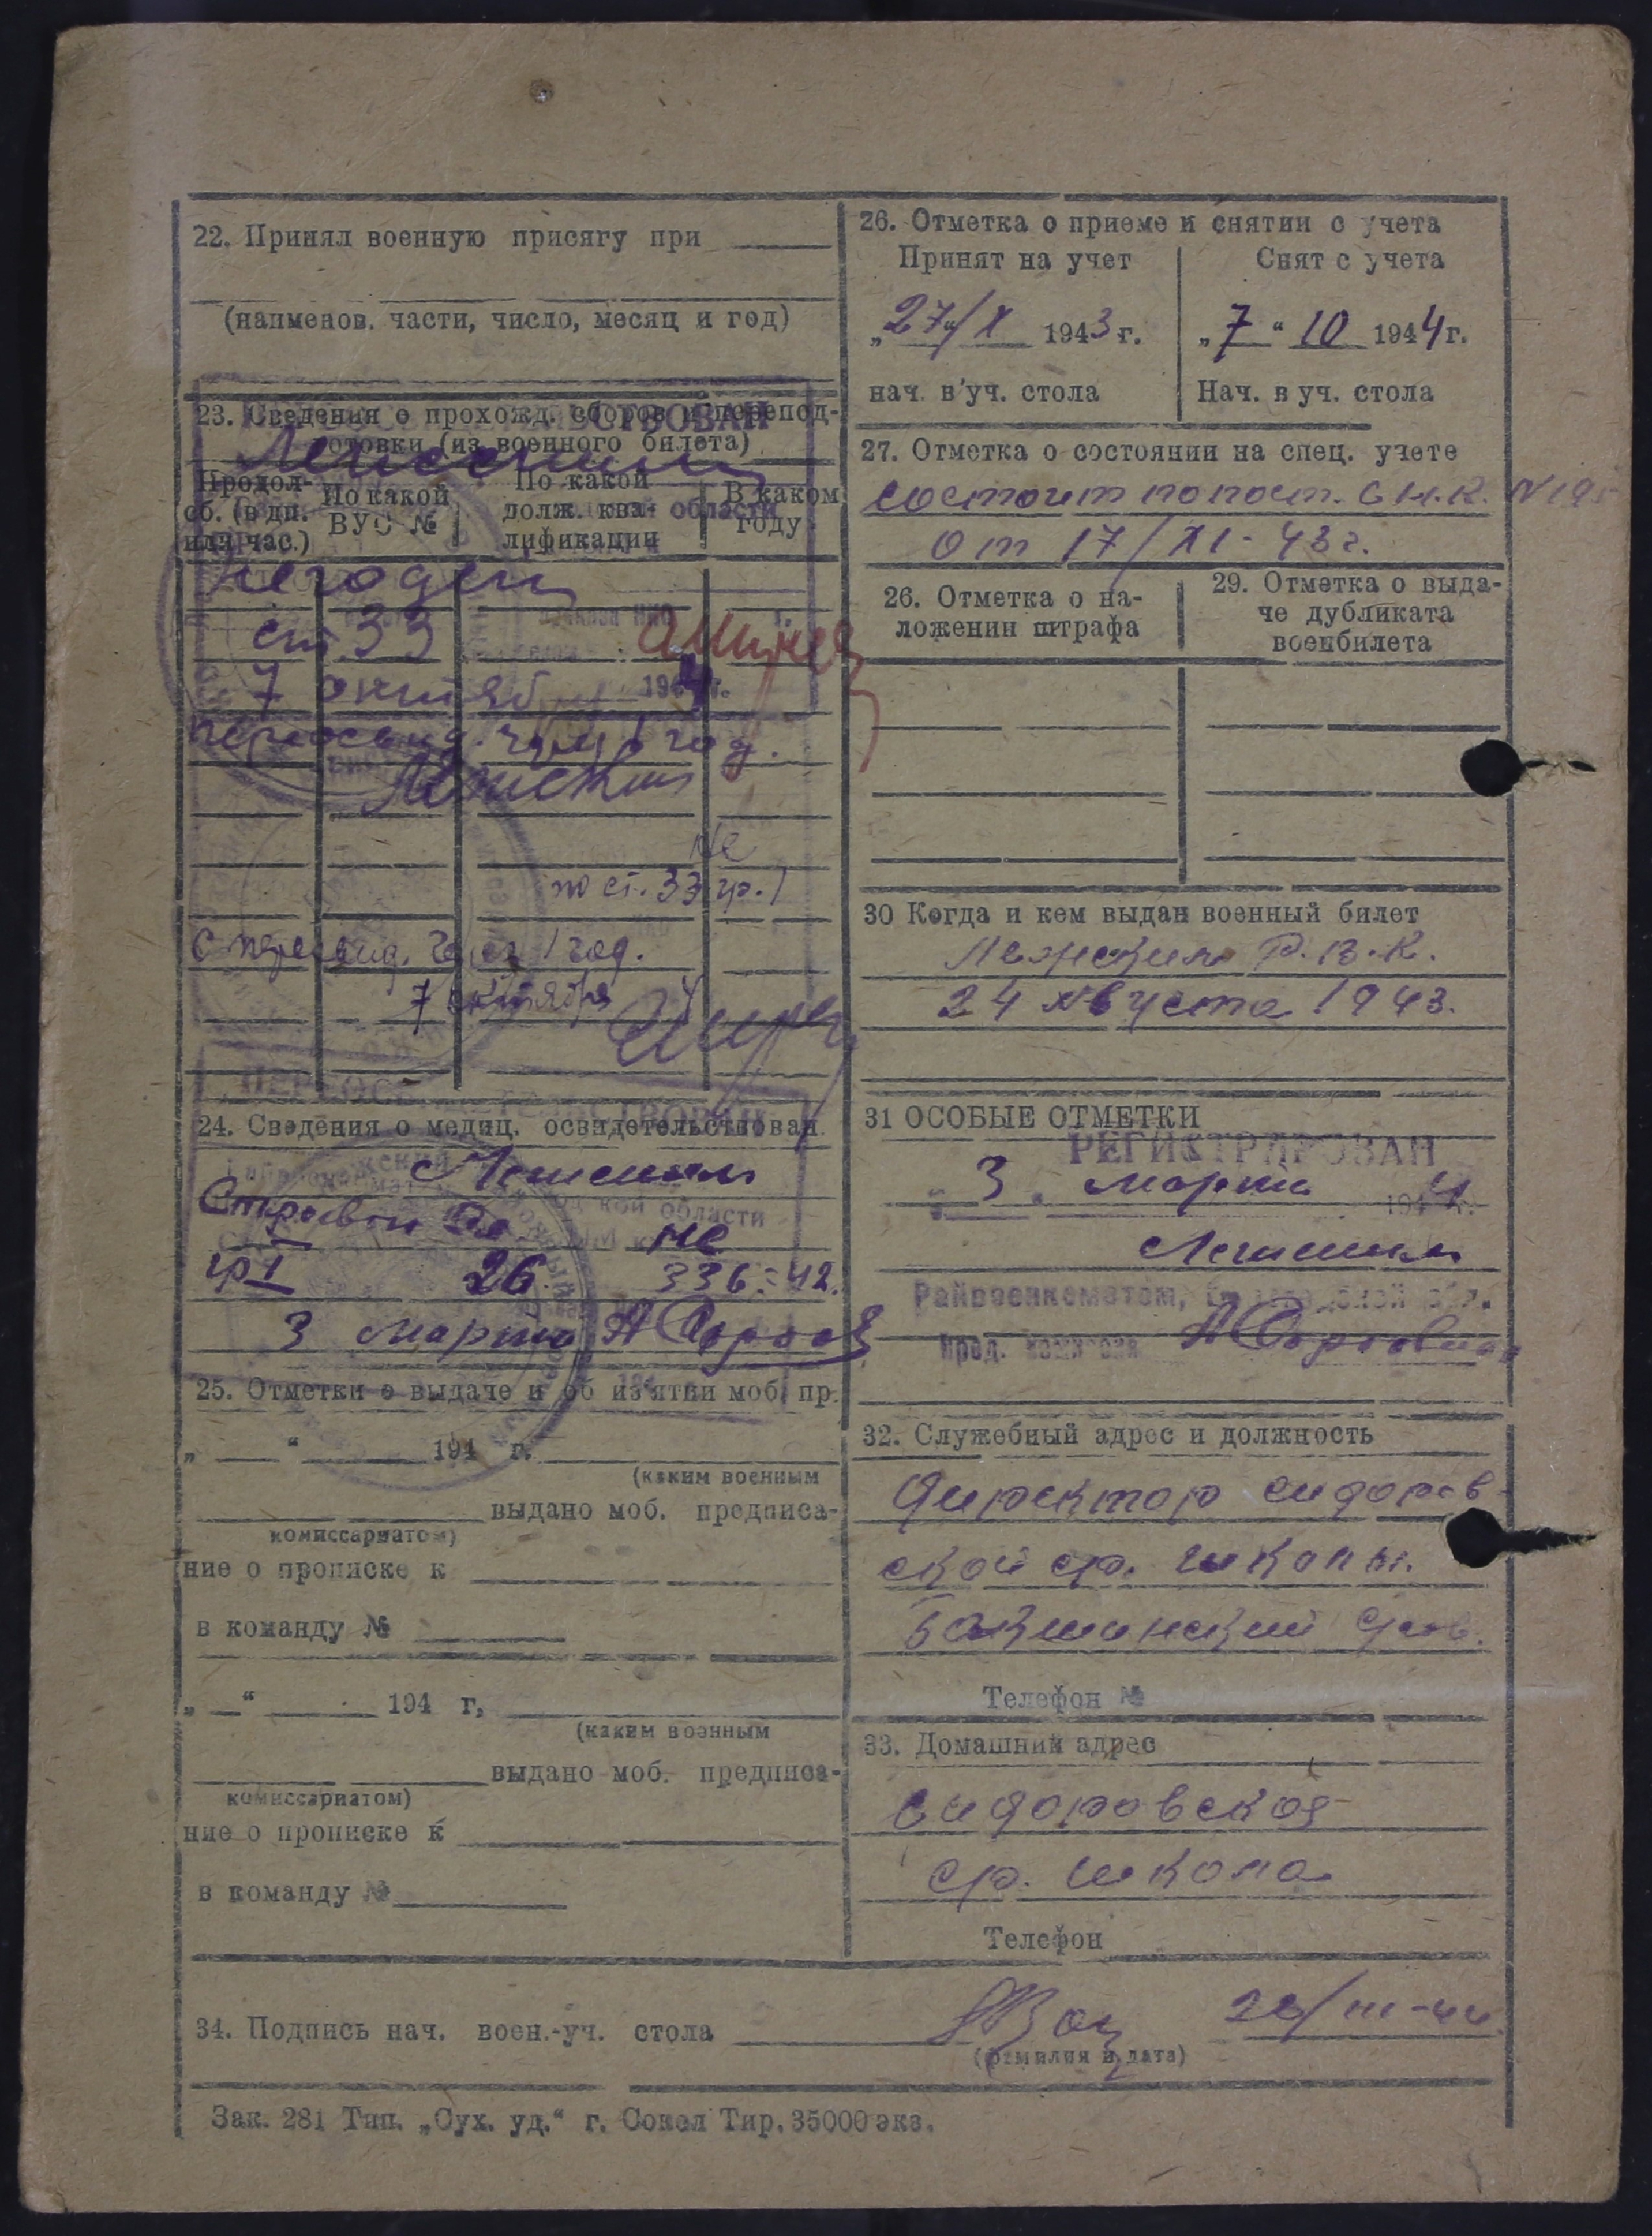 22. Принял военную присягу при
(наименов. части, число, месяц и год)
23. Сведения о прохожд. сборов и перепод-
готовки (из военного билета)
Продол- По какой По какой В каком
сб. (в дн. ВУС № долж. ква- году
или час.) лификации
области
негоден
ст. 33
приказа НКО
7 октяб 194 г.
переосвид. через 1 год.
не
по ст. 33 гр. 1
С переосвид. через 1 год.
7 октября
ПЕРЕОСВИДЕТЕЛЬСТВОВАН
24. Сведения о медиц. освидетельствован
области
не
гр I 26 336-42.
3 марта
25. Отметки о выдаче и об из'ятии моб. пр.
„ “ 194 г.
(каким военным
выдано моб. предписа-
комиссариатом)
ние о прописке к
в команду №
„ “ 194 г,
(каким военным
выдано моб. предписа-
комиссариатом)
ние о прописке к
в команду №
26. Отметка о приеме и снятии с учета
Принят на учет Снят с учета
„27“/X 1943 г. „7“ 10 1944 г.
нач. в уч. стола Нач. в уч. стола
27. Отметка о состоянии на спец. учете
состоит по пост. С.Н.К. N 195
от 17/XI-43 г.
26. Отметка о на- 29. Отметка о выда-
ложении штрафа че дубликата
военбилета
30 Когда и кем выдан военный билет
Лежским Р.В.К.
24 августа 1943.
31 ОСОБЫЕ ОТМЕТКИ
РЕГИСТРИРОВАН
„3“ марта 1944 г.
Лежским
Райвоенкоматом, Вологодской обл.
Пред. комиссии
32. Служебный адрес и должность
Директор сидоров-
ской ср. школы.
Бакшинский с/сов.
Телефон №
33. Домашний адрес
сидоровская
ср. школа
Телефон
34. Подпись нач. воен.-уч. стола
(фамилия и дата)
Зак. 281 Тип. „Сух. уд.“ г. Сокол Тир. 35000 экз.